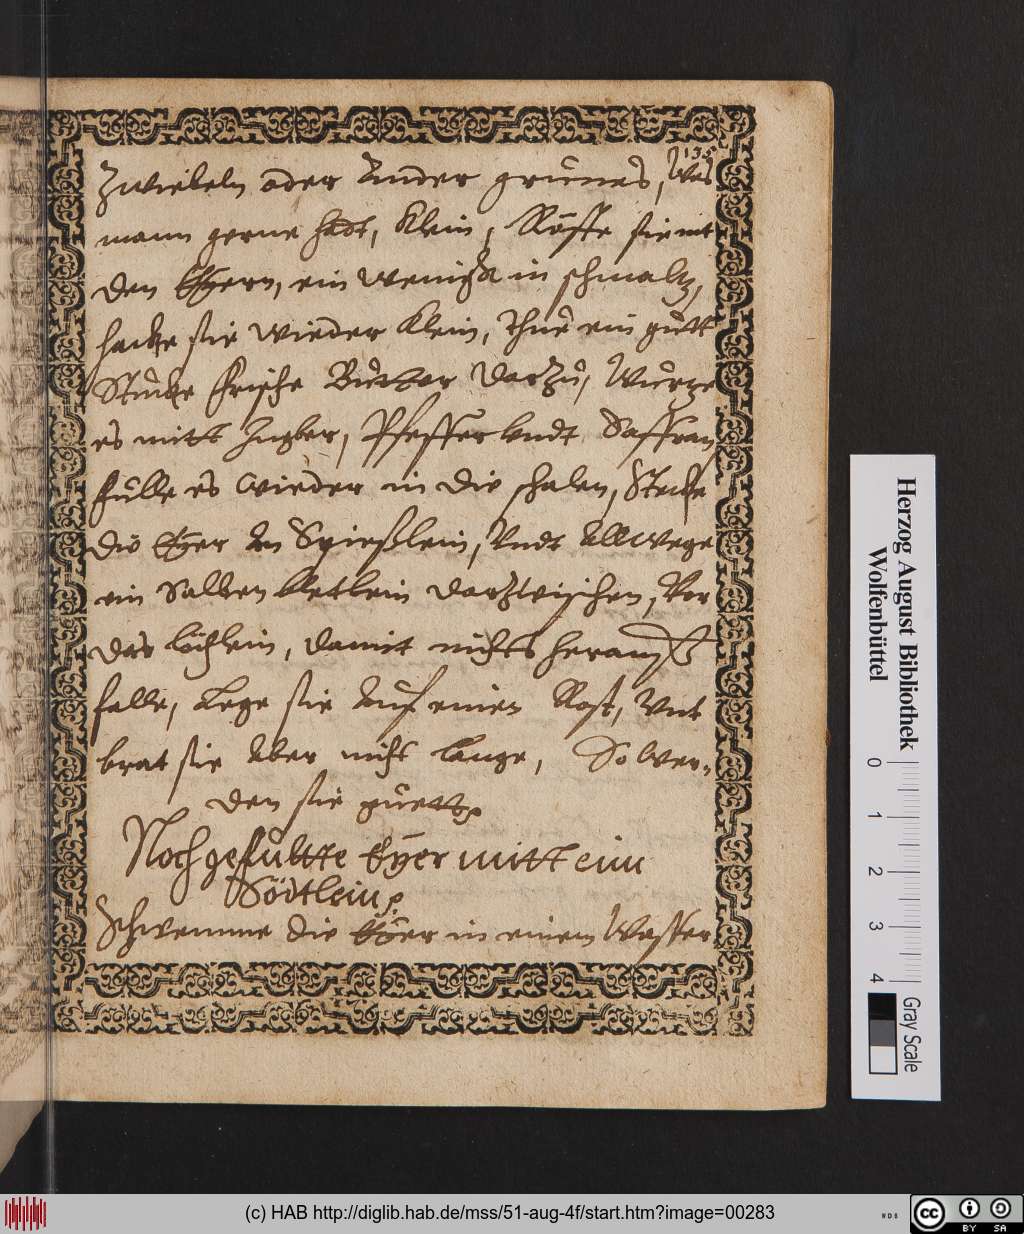 135
Zwiebeln oder ander grünes, Was
mann gerne hadt, klein, Röste sie mit
den Eÿern, ein weniga in schmaltz,
hacke sie wieder klein, Thue ein gutt
Stucke frische Butter darzu, Wurze
es mitt Ingber, Pfeffer vndt Saffran,
fülle es wieder in die schalen, Stecke
die Eÿer an Spießlein, Vndt allwege
ein Salben bletlein darzwischen, Vor
das löchlein, damit nichts herauß
falle, Lege sie auf einen Rost, Vnt
brat sie aber nicht lange, So wer-
den sie guett
Noch gefultte Eÿer mitt eim
Södtlein
Schwemme die Eÿer in einem Wasser
Herzog August Bibliothek
Wolfenbüttel
0 1 2 3 4
Gray Scale
(c) HAB http://diglib.hab.de/mss/51-aug-4f/start.htm?image=00283
WDB
cc BY SA